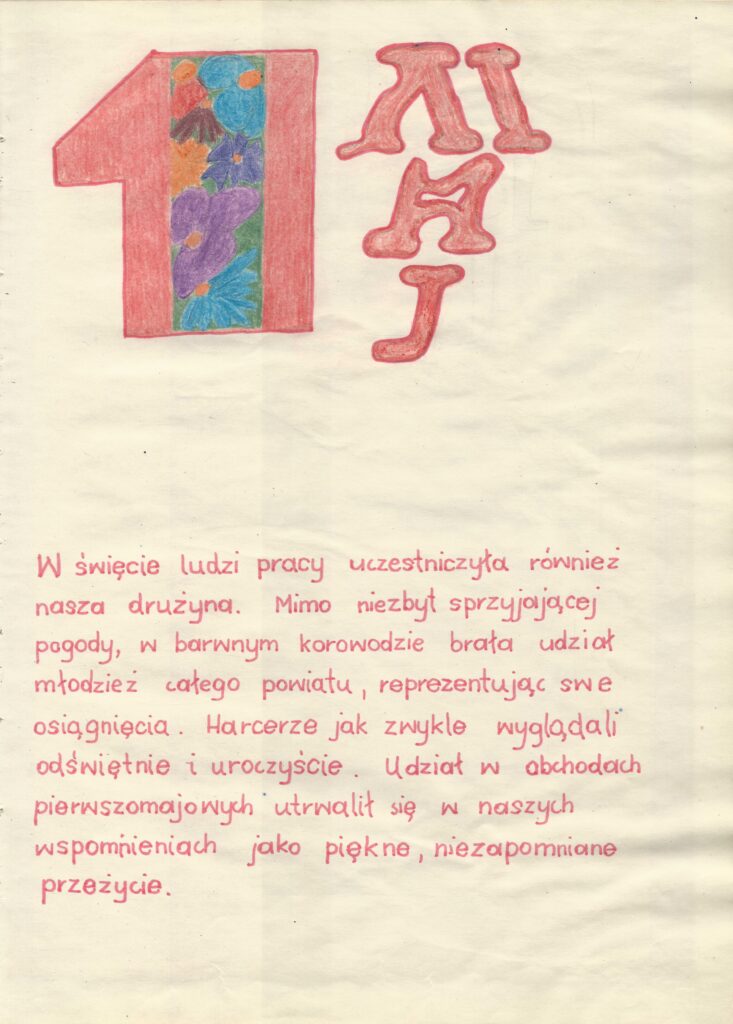 1 M
A
J
W święcie ludzi pracy uczestniczyła również
nasza drużyna. Mimo niezbyt sprzyjającej
pogody, w barwnym korowodzie brała udział
młodzież całego powiatu, reprezentując swe
osiągnięcia. Harcerze jak zwykle wyglądali
odświętnie i uroczyście. Udział w obchodach
pierwszomajowych utrwalił się w naszych
wspomnieniach jako piękne, niezapomniane
przeżycie.